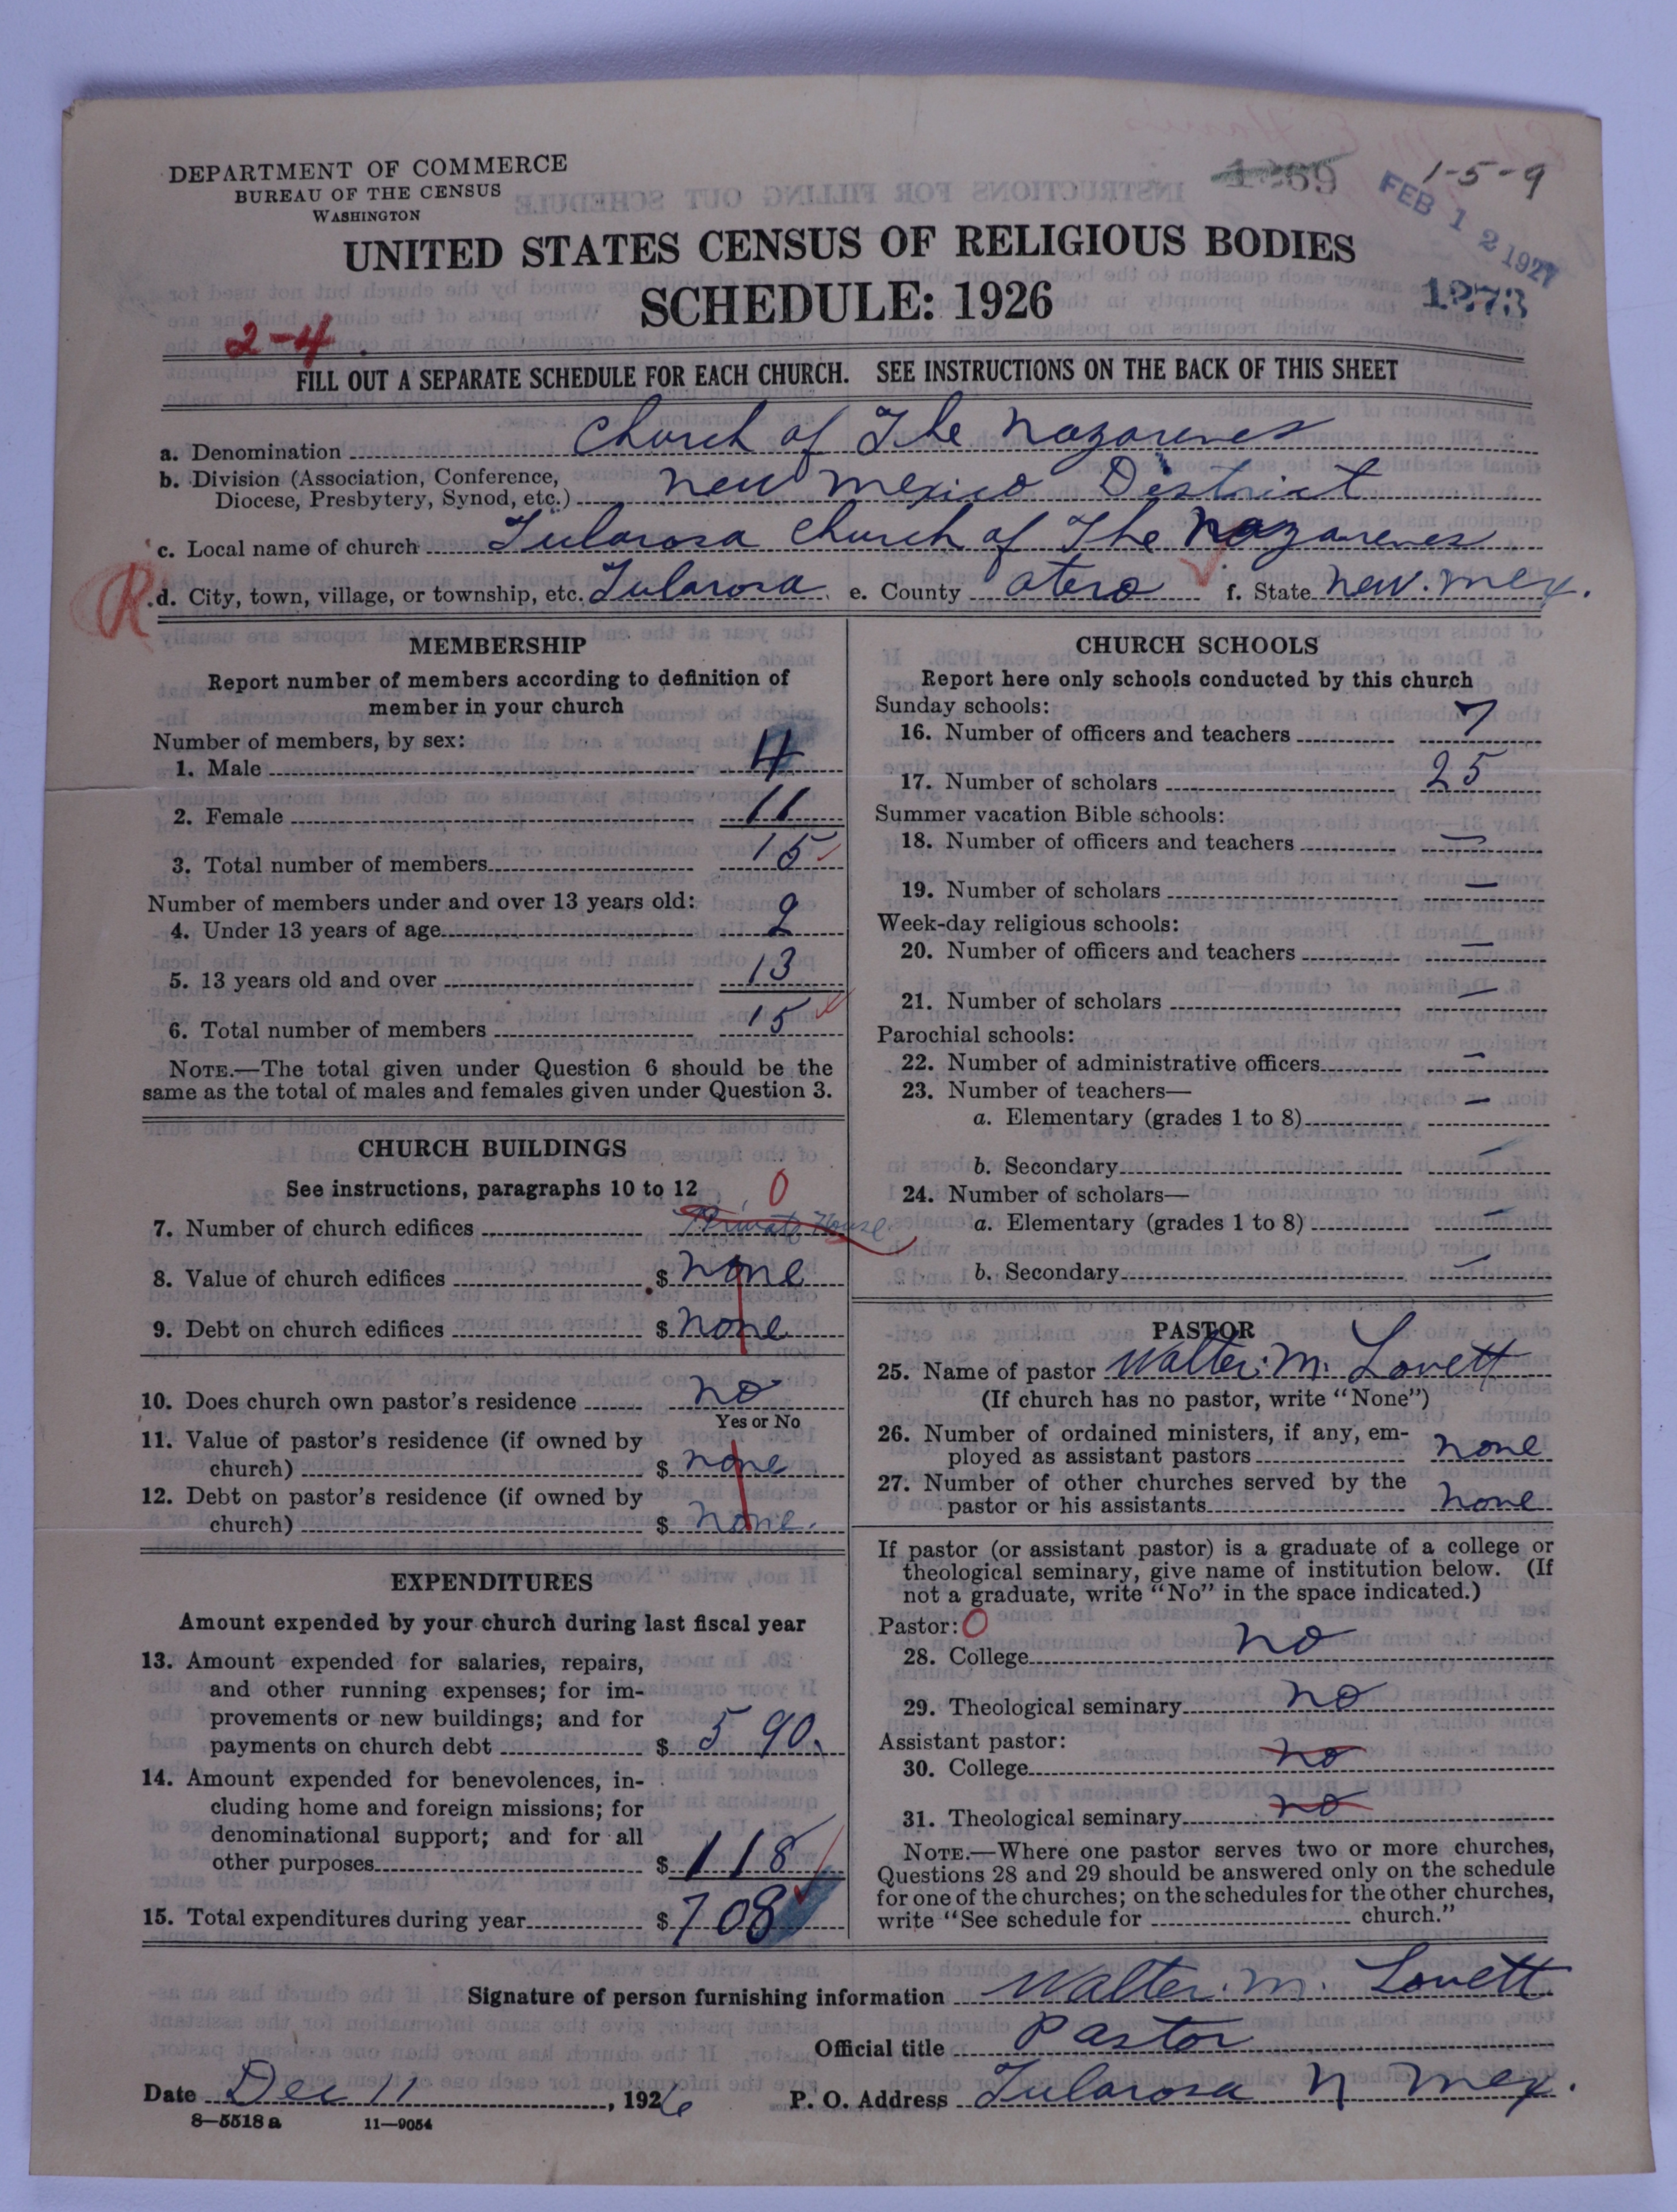 DEPARTMENT OF COMMERCE
BUREAU OF THE CENSUS
WASHINGTON
1269
1-5-9
FEB 12 1927
UNITED STATES CENSUS OF RELIGIOUS BODIES
SCHEDULE: 1926
1273
2-4
FILL OUT A SEPARATE SCHEDULE FOR EACH CHURCH. SEE INSTRUCTIONS ON THE BACK OF THIS SHEET
a. Denomination Church of The Nazarenes
b. Division (Association, Conference,
Diocese, Presbytery, Synod, etc.) New Mexico District
c. Local name of church Tularosa Church of The Nazarenes
R
d. City, town, village, or township, etc. Tularosa e. County Otero f. State New. Mex.
MEMBERSHIP
Report number of members according to definition of
member in your church
Number of members, by sex:
1. Male 4
2. Female 11
3. Total number of members 15
Number of members under and over 13 years old:
4. Under 13 years of age 2
5. 13 years old and over 13
6. Total number of members 15
NOTE.—The total given under Question 6 should be the
same as the total of males and females given under Question 3.
CHURCH BUILDINGS
See instructions, paragraphs 10 to 12
0
7. Number of church edifices Private House
8. Value of church edifices $ none
9. Debt on church edifices $ none
10. Does church own pastor's residence no
Yes or No
11. Value of pastor's residence (if owned by
church) $ none
12. Debt on pastor's residence (if owned by
church) $ none.
EXPENDITURES
Amount expended by your church during last fiscal year
13. Amount expended for salaries, repairs,
and other running expenses; for im-
provements or new buildings; and for
payments on church debt $ 590.
14. Amount expended for benevolences, in-
cluding home and foreign missions; for
denominational support; and for all
other purposes $ 118
15. Total expenditures during year $ 708
CHURCH SCHOOLS
Report here only schools conducted by this church
Sunday schools:
16. Number of officers and teachers 7
17. Number of scholars 25
Summer vacation Bible schools:
18. Number of officers and teachers —
19. Number of scholars —
Week-day religious schools:
20. Number of officers and teachers —
21. Number of scholars —
Parochial schools:
22. Number of administrative officers —
23. Number of teachers—
a. Elementary (grades 1 to 8) —
b. Secondary —
24. Number of scholars—
a. Elementary (grades 1 to 8) —
b. Secondary —
PASTOR
25. Name of pastor Walter. M. Lovett
(If church has no pastor, write "None")
26. Number of ordained ministers, if any, em-
ployed as assistant pastors none
27. Number of other churches served by the
pastor or his assistants none
If pastor (or assistant pastor) is a graduate of a college or
theological seminary, give name of institution below. (If
not a graduate, write "No" in the space indicated.)
Pastor: 0
28. College no
29. Theological seminary no
Assistant pastor:
30. College no
31. Theological seminary no
NOTE.—Where one pastor serves two or more churches,
Questions 28 and 29 should be answered only on the schedule
for one of the churches; on the schedules for the other churches,
write "See schedule for church."
Signature of person furnishing information Walter. M. Lovett
Official title Pastor
Date Dec 11, 1926 P. O. Address Tularosa N Mex.
8—5518 a 11—9054